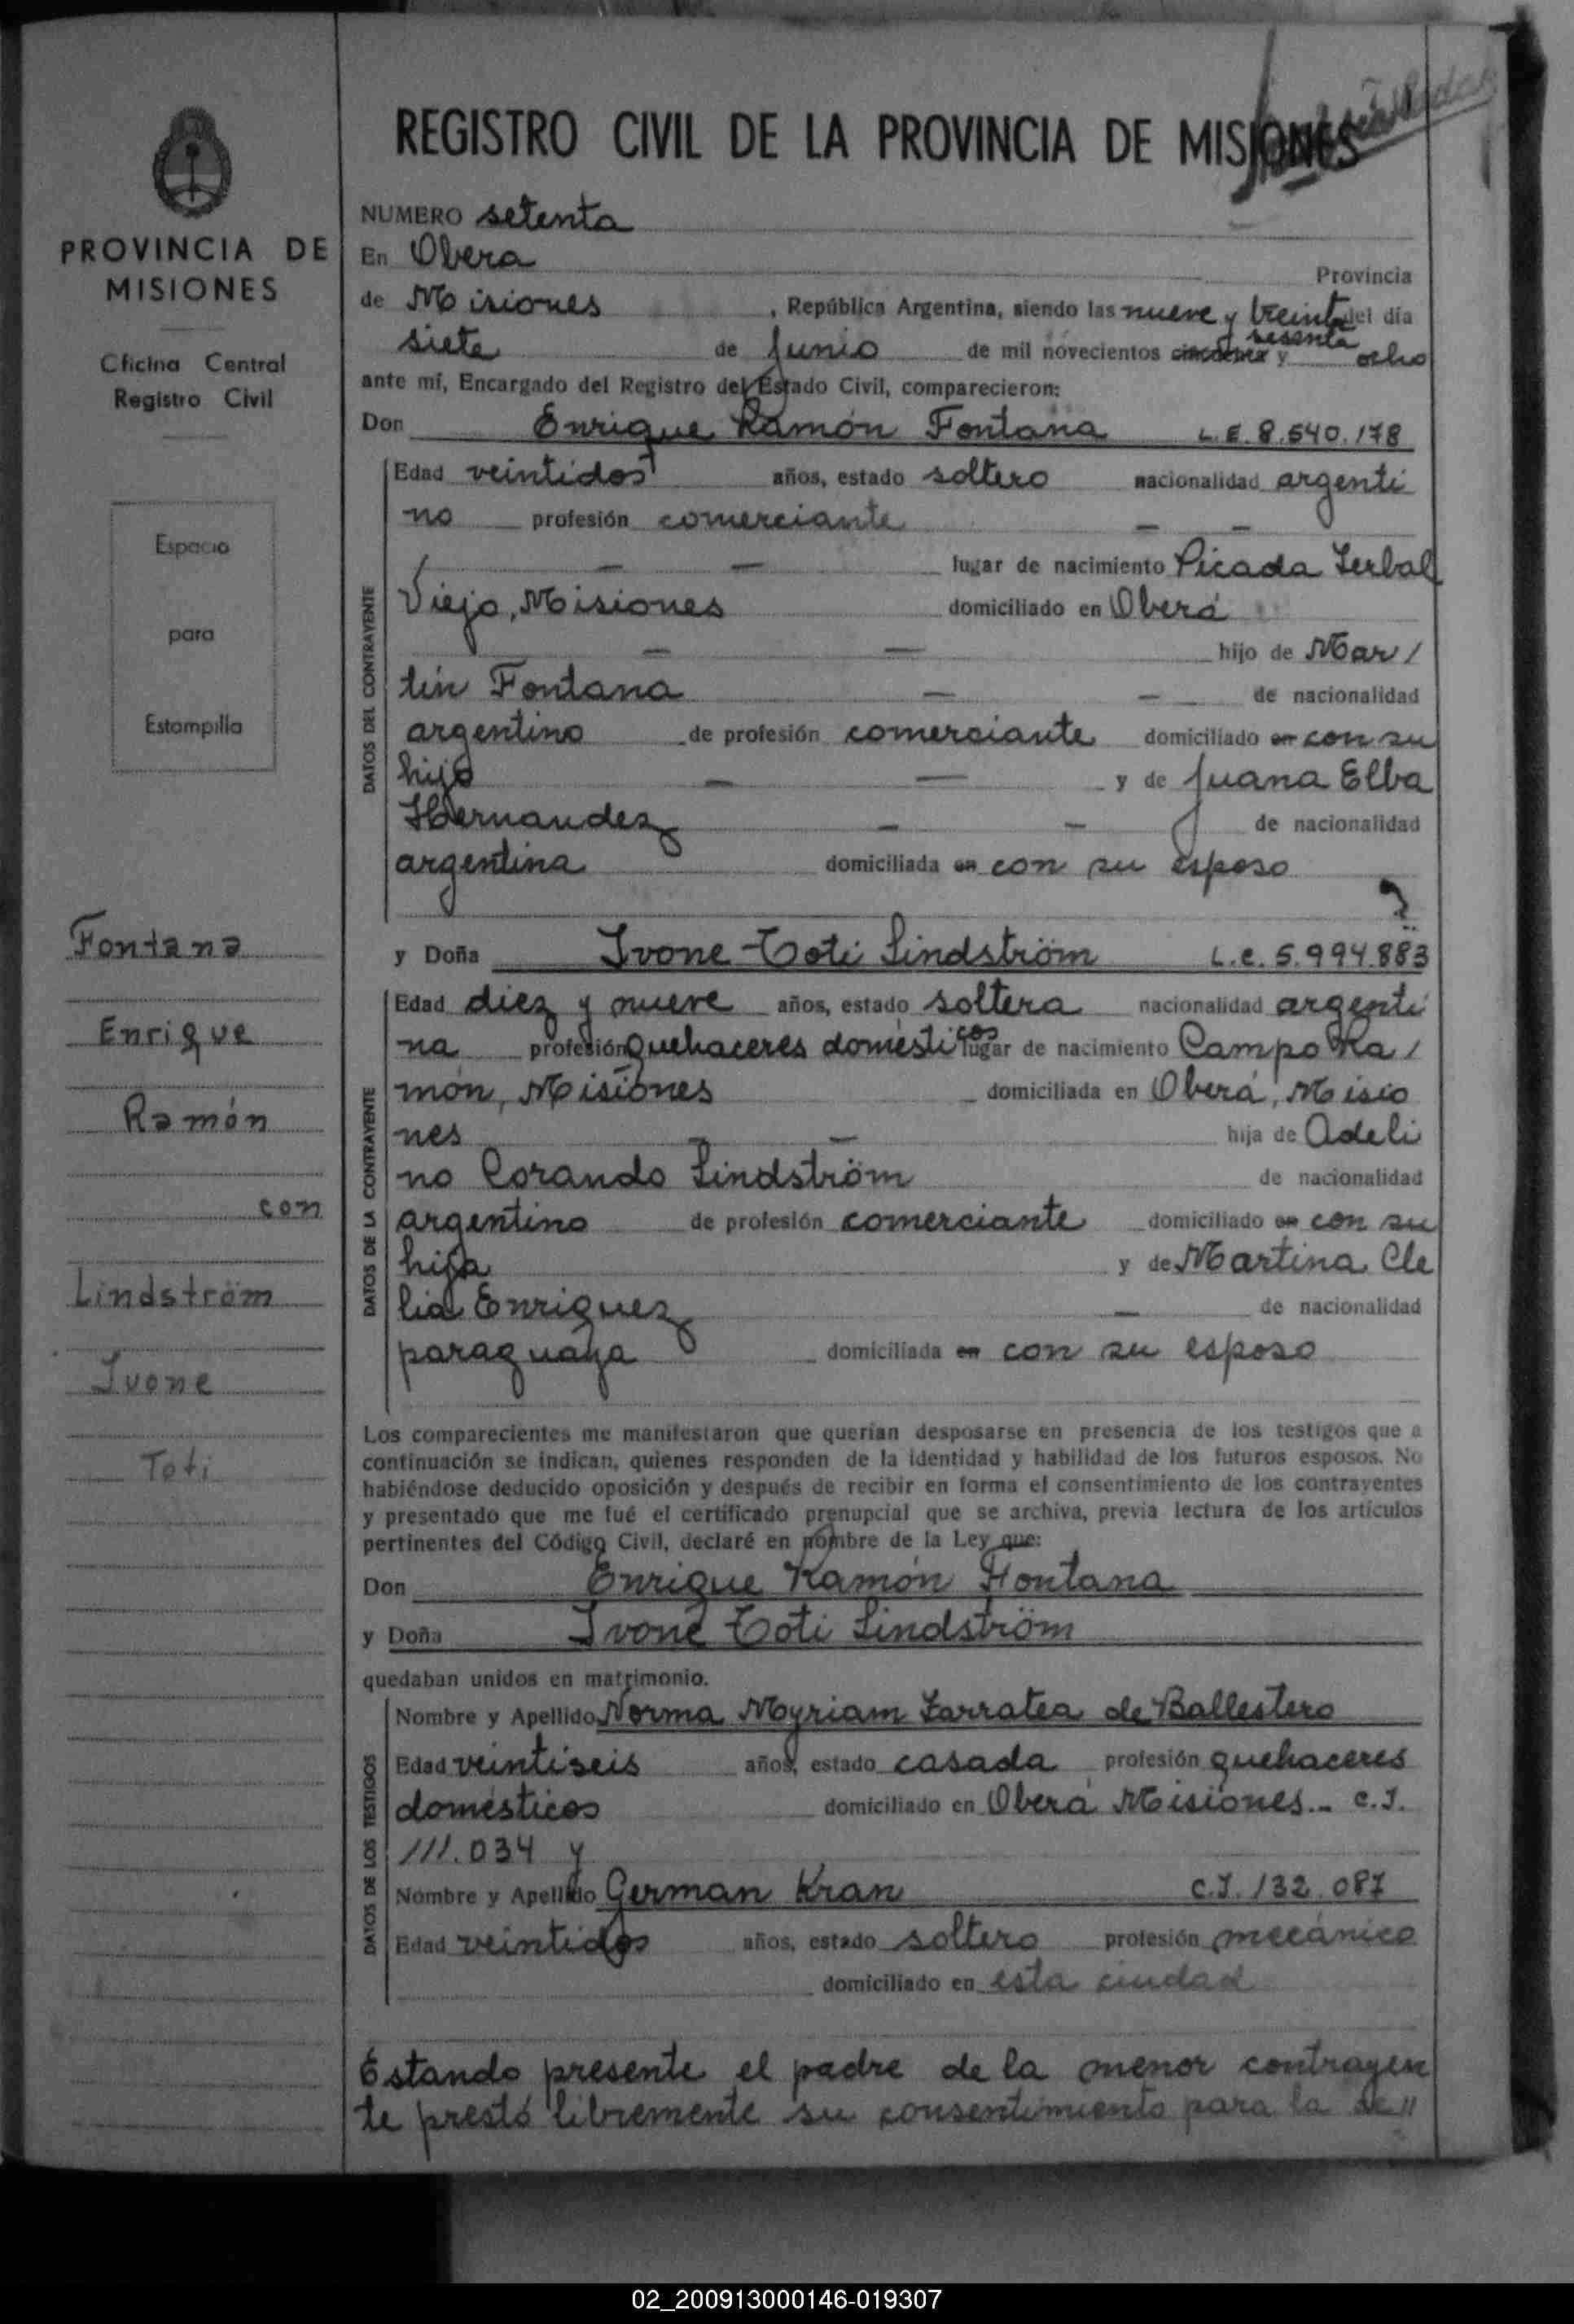 REGISTRO CIVIL DE LA PROVINCIA DE MISIONES
PROVINCIA DE
MISIONES
Oficina Central
Registro Civil
Espacio
para
Estampilla
Fontana
Enrique
Ramón
con
Lindström
Ivone
Toti
NUMERO setenta
En Obera Provincia
de Misiones, República Argentina, siendo las nueve y treinta del día
siete de Junio de mil novecientos cincuenta y sesenta ocho
ante mí, Encargado del Registro del Estado Civil, comparecieron:
Don Enrique Ramón Fontana L.E. 8.540.178
DATOS DEL CONTRAYENTE
Edad veintidos años, estado soltero nacionalidad argenti
no profesión comerciante — —
— — lugar de nacimiento Picada Yerbal
Viejo, Misiones domiciliado en Oberá
— — hijo de Mar/
tin Fontana — — de nacionalidad
argentino de profesión comerciante domiciliado en con su
hijo — — y de Juana Elba
Hernandez — — de nacionalidad
argentina domiciliada en con su esposo
y Doña Ivone Toti Lindström L.C. 5.994.883
DATOS DE LA CONTRAYENTE
Edad diez y nueve años, estado soltera nacionalidad argenti
na profesión quehaceres domesticos lugar de nacimiento Campo Ra/
món, Misiones domiciliada en Oberá, Misio
nes — — hija de Adeli
no Corando Lindström de nacionalidad
argentino de profesión comerciante domiciliado en con su
hija y de Martina Cle
lia Enriquez — de nacionalidad
paraguaya domiciliada en con su esposo
Los comparecientes me manifestaron que querían desposarse en presencia de los testigos que a
continuación se indican, quienes responden de la identidad y habilidad de los futuros esposos. No
habiéndose deducido oposición y después de recibir en forma el consentimiento de los contrayentes
y presentado que me fué el certificado prenupcial que se archiva, previa lectura de los artículos
pertinentes del Código Civil, declaré en nombre de la Ley que:
Don Enrique Ramón Fontana
y Doña Ivone Toti Lindström
quedaban unidos en matrimonio.
DATOS DE LOS TESTIGOS
Nombre y Apellido Norma Myriam Larratea de Ballestero
Edad veintiseis años, estado casada profesión quehaceres
domésticos domiciliado en Oberá Misiones.- C.I.
111.034 y
Nombre y Apellido German Kran C.I. 132.087
Edad veintidos años, estado soltero profesión mecánico
domiciliado en esta ciudad
Estando presente el padre de la menor contrayen
te prestó libremente su consentimiento para la ce//
02_200913000146-019307